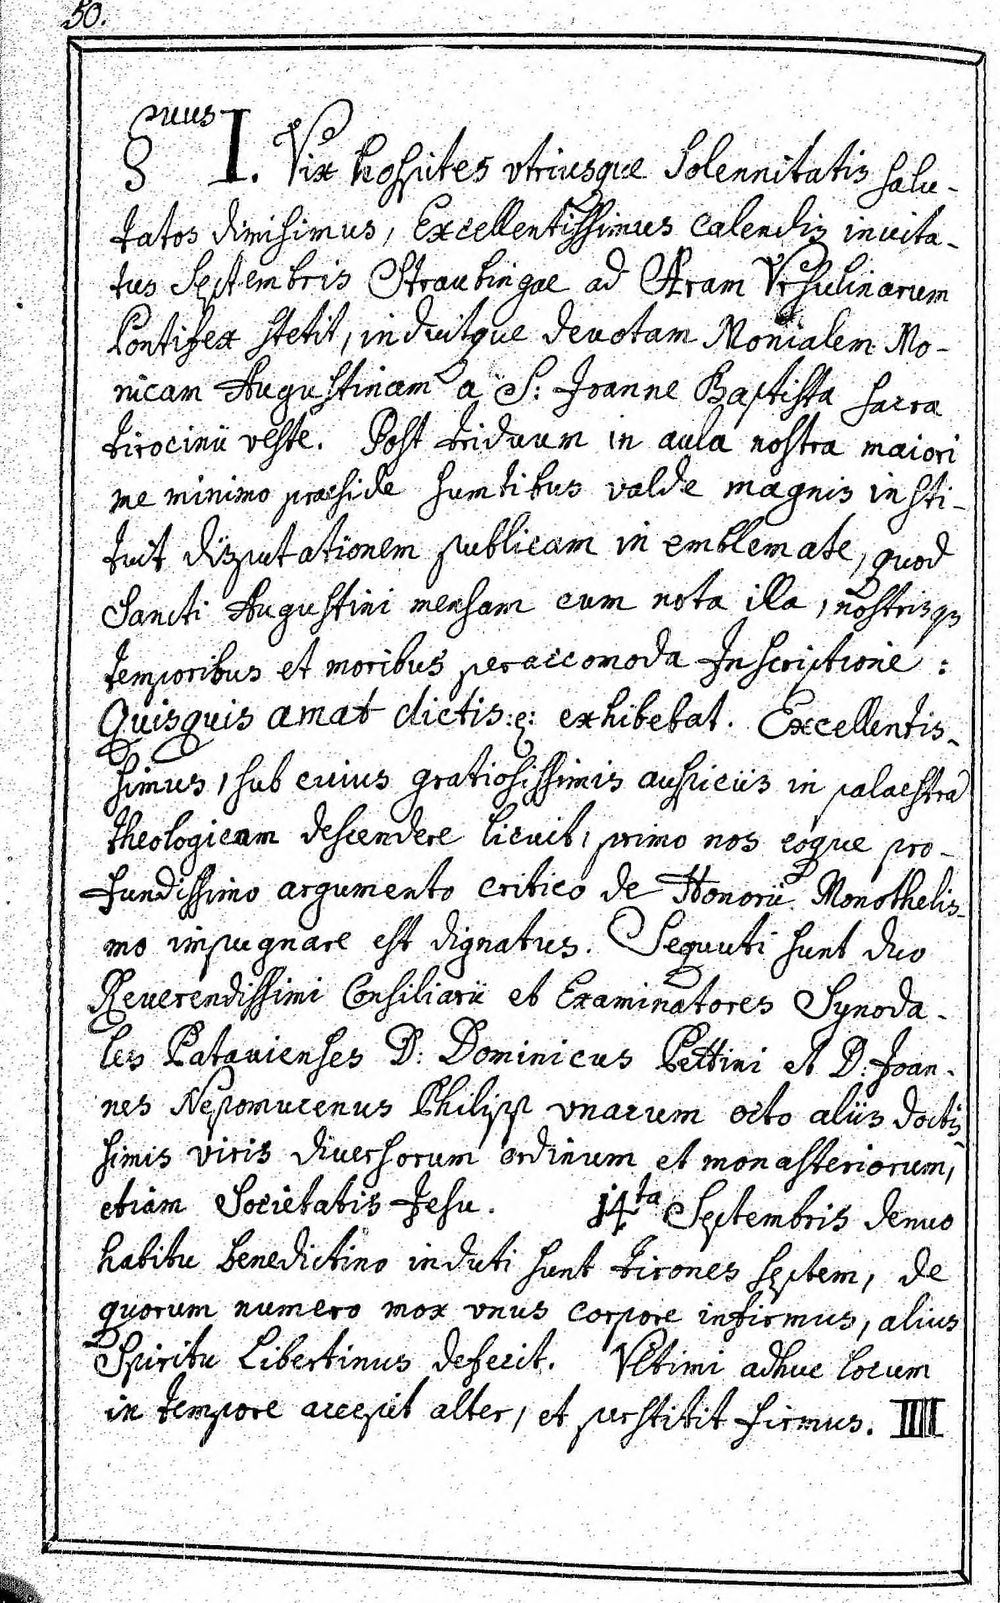 50.
§nus I. Vix hospites vtriusque Solennitatis salu-
tatos dimisimus, Excellentissimus calendis inuita-
tus Septembris Straubingae ad Aram Vrsulinarum
Pontifex stetit, induitque deuotam Monialem Mo-
nicam Augustinam a S: Joanne Baptista sacra
tirocinii veste. Post triduum in aula nostra maiori
me minimo praeside sumtibus valde magnis insti-
tuit disputationem publicam in emblemate, quod
Sancti Augustini mensam cum nota illa, nostrisqz
temporibus et moribus peraccomoda Inscriptione :
Quisquis amat dictis :e: exhibebat. Excellentis-
simus, sub cuius gratiosissimis auspiciis in palaestra
theologicam descendere licuit, primo nos eoque pro-
fundissimo argumento critico de Honorii Monothelis-
mo impugnare est dignatus. Sequuti sunt duo
Reuerendissimi Consiliarii et Examinatores Synoda-
les Patauienses D: Dominicus Pettini et D: Joan-
nes Nepomucenus Philipp vnacum octo aliis doctis-
simis viris diuersorum ordinum et monasteriorum,
etiam Societatis Jesu. 14ta Septembris denuo
habitu benedictino induti sunt tirones septem, de
quorum numero mox vnus corpore infirmus, alius
Spiritu Libertinus defecit. Vltimi adhuc locum
in tempore accepit alter, et perstitit firmus. IIII